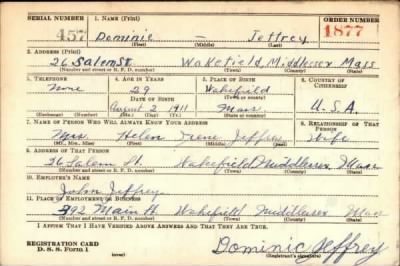 SERIAL NUMBER 1. NAME (Print) ORDER NUMBER
457 Dominic — Jeffrey 1877
(First) (Middle) (Last)
2. ADDRESS (Print)
26 Salem St Wakefield, Middlesex Mass
(Number and street or R. F. D. number) (Town) (County) (State)
3. TELEPHONE 4. AGE IN YEARS 5. PLACE OF BIRTH 6. COUNTRY OF CITIZENSHIP
None 29 Wakefield
DATE OF BIRTH (Town or county)
August 2 1911 Mass. U.S.A.
(Exchange) (Number) (Mo.) (Day) (Yr.) (State or country)
7. NAME OF PERSON WHO WILL ALWAYS KNOW YOUR ADDRESS 8. RELATIONSHIP OF THAT PERSON
Mrs. Helen Irene Jeffrey Wife
(Mr., Mrs., Miss) (First) (Middle) (Last)
9. ADDRESS OF THAT PERSON
26 Salem St. Wakefield Middlesex Mass
(Number and street or R. F. D. number) (Town) (County) (State)
10. EMPLOYER'S NAME
John Jeffrey
11. PLACE OF EMPLOYMENT OR BUSINESS
392 Main St Wakefield Middlesex Mass
(Number and street or R. F. D. number) (Town) (County) (State)
I AFFIRM THAT I HAVE VERIFIED ABOVE ANSWERS AND THAT THEY ARE TRUE.
REGISTRATION CARD
D. S. S. Form 1 (over) Dominic Jeffrey
(Registrant's signature)